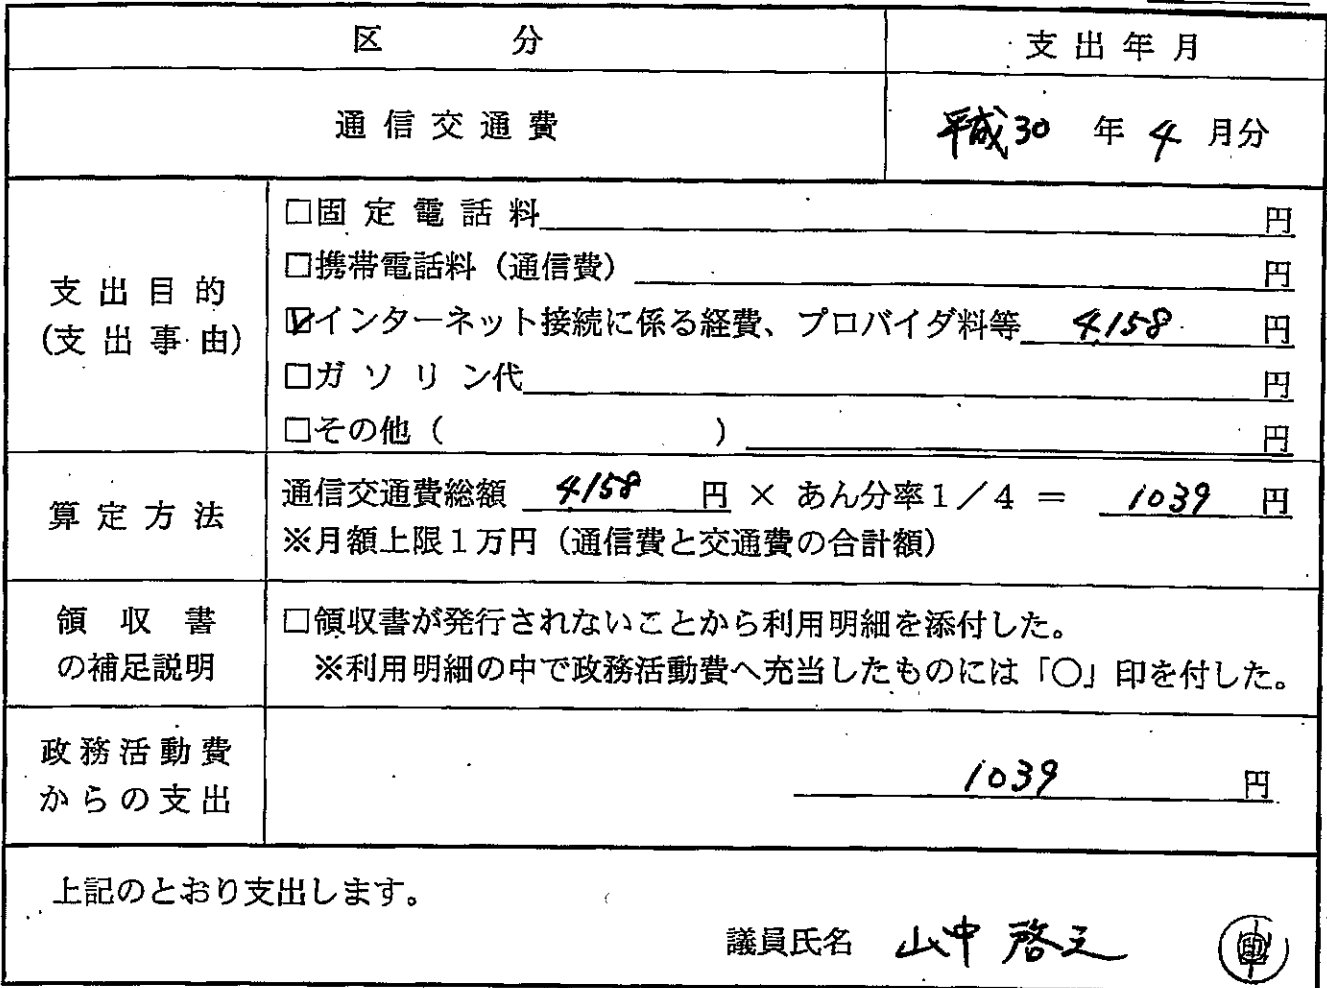 区 分 支出年月
通信交通費 平成30 年 4 月分
支出目的
(支出事由)
□固定電話料 円
□携帯電話料(通信費) 円
☑インターネット接続に係る経費、プロバイダ料等 4158 円
□ガソリン代 円
□その他( ) 円
算定方法
通信交通費総額 4158 円 × あん分率1/4 = 1039 円
※月額上限1万円(通信費と交通費の合計額)
領収書
の補足説明
□領収書が発行されないことから利用明細を添付した。
※利用明細の中で政務活動費へ充当したものには「○」印を付した。
政務活動費
からの支出
1039 円
上記のとおり支出します。
議員氏名 山中 啓之